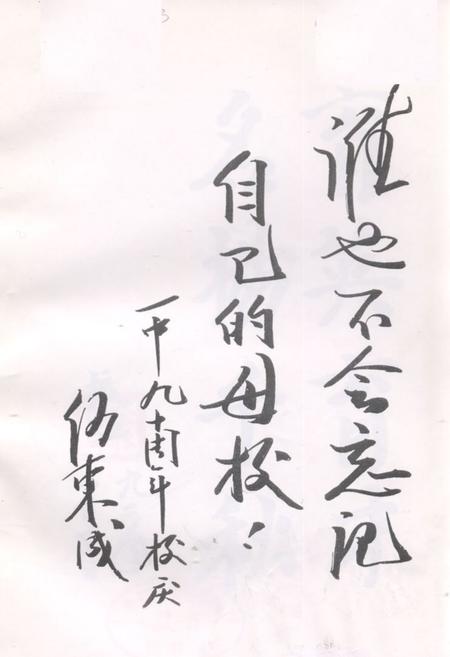 谁也不会忘记
自己的母校！
一中九十周年校庆